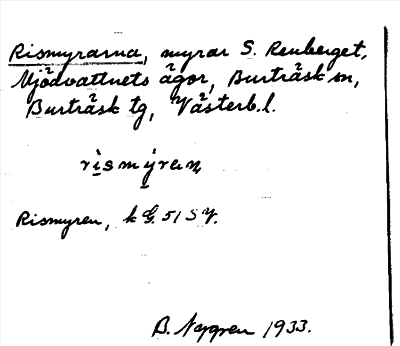 Rismyrarna, myrar S. Renberget,
Mjödvattnets ägor, Burträsk sn,
Burträsk tg, Västerb.l.
rismýran
Rismyren, k G. 51 S Y.
B. Nygren 1933.